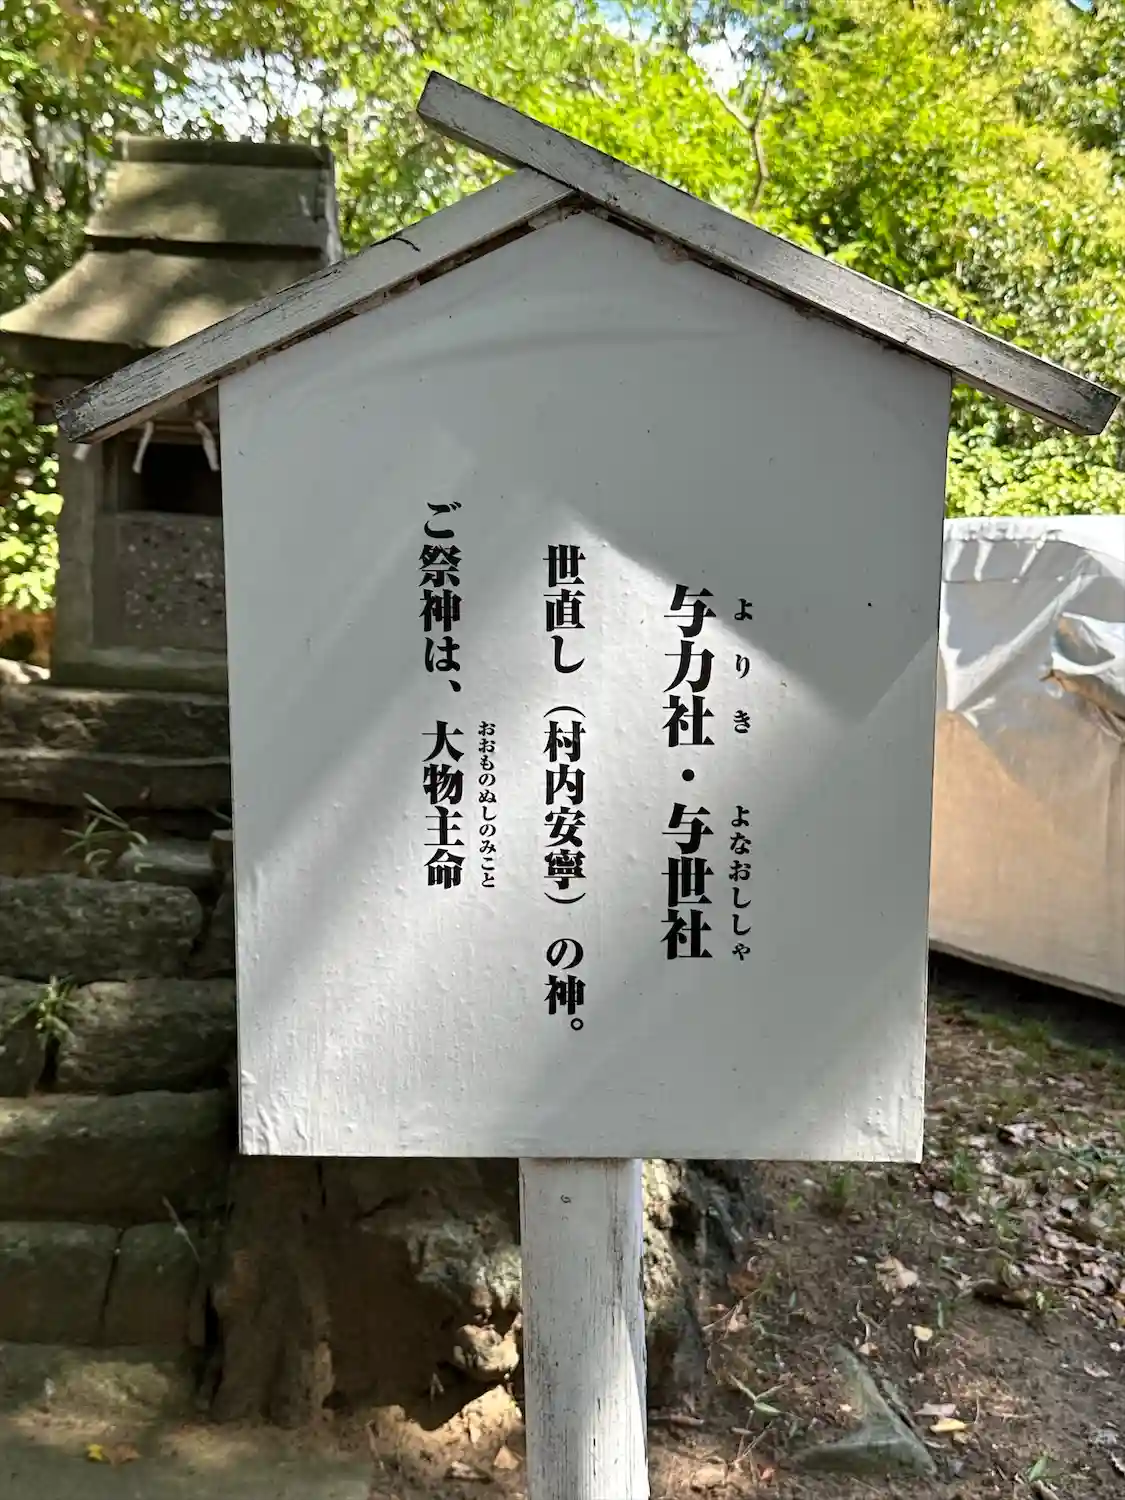 与力社・与世社
よりき よなおししゃ
世直し（村内安寧）の神。
ご祭神は、大物主命
おおものぬしのみこと